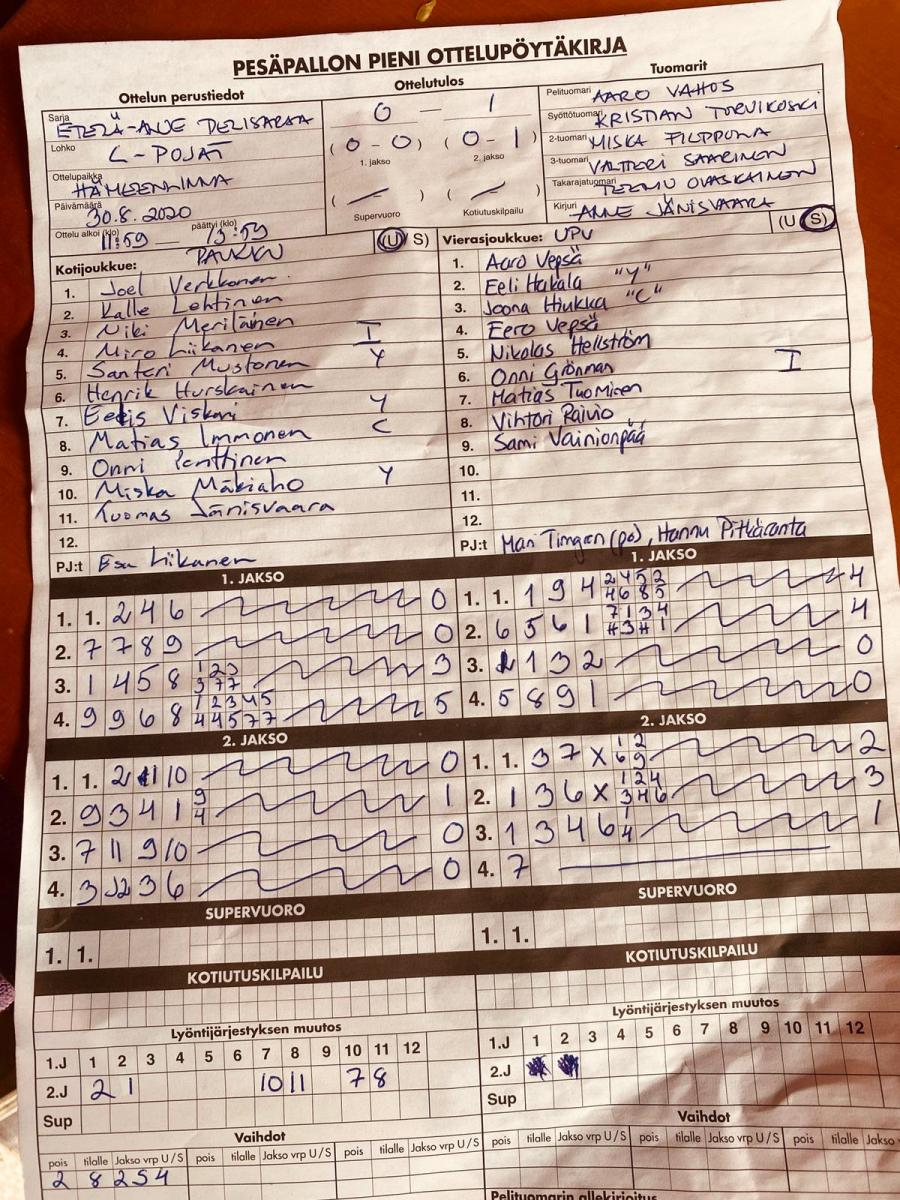 PESÄPALLON PIENI OTTELUPÖYTÄKIRJA
Ottelun perustiedot
Sarja
Lohko C-POJAT
Ottelupaikka HÄMEENLINNA
Päivämäärä 30.8.2020
Ottelu alkoi (klo) 11:59 — päättyi (klo) 13:59
Ottelutulos
0 — 1
(0-0) (0-1)
1. jakso 2. jakso
( — ) ( — )
Supervuoro Kotiutuskilpailu
Tuomarit
Pelituomari AARO VAHOS
Syöttötuomari KRISTIAN TORVIKOSKI
2-tuomari MISKA PILPPONA
3-tuomari VALTTERI SAARINEN
Takarajatuomari TEEMU OVASKAINEN
Kirjuri ANNE JÄNISVAARA
Kotijoukkue: PAUKKU (U S)
1. Joel Verkkonen
2. Kalle Lehtinen
3. Niki Meriläinen
4. Miro Liikanen I
5. Santeri Mustonen Y
6. Henrik Hurskainen
7. Eelis Viskari Y
8. Matias Immonen C
9. Onni Penttinen
10. Miska Mäkiaho Y
11. Tuomas Jänisvaara
12.
PJ:t Esa Liikanen
Vierasjoukkue: UPV (U S)
1. Aaro Vepsä
2. Eeli Hakala "Y"
3. Joona Hiukka "C"
4. Eero Vepsä
5. Nikolas Hellström
6. Onni Grönman I
7. Matias Tuominen
8. Vihtori Raivio
9. Sami Vainionpää
10.
11.
12.
PJ:t Mari Timgren (po), Hannu Pitkäranta
1. JAKSO
1. 1. 2 4 6 0
2. 7 7 8 9 0
3. 1 4 5 8 1 2 3 3
3 7 7
4. 9 9 6 8 1 2 3 4 5 5
4 4 5 7 7
2. JAKSO
1. 1. 2 11 10 0
2. 9 3 4 1 9 1
4
3. 7 11 9 10 0
4. 3 2 3 6 0
SUPERVUORO
1. 1.
KOTIUTUSKILPAILU
Lyöntijärjestyksen muutos
1.J 1 2 3 4 5 6 7 8 9 10 11 12
2.J 2 1 10 11 7 8
Sup
Vaihdot
pois tilalle Jakso vrp U/S pois tilalle Jakso vrp U/S pois tilalle Jakso vrp U/S
2 8 2 S 4
1. JAKSO
1. 1. 1 9 4 2 4 5 2 4
4 6 8 5
2. 6 5 6 1 7 1 3 4 4
# 3 # 1
3. 1 1 3 2 0
4. 5 8 9 1 0
2. JAKSO
1. 1. 3 7 X 1 2 2
6 9
2. 1 3 6 X 1 2 4 3
3 4 6
3. 1 3 4 6 1 1
4
4. 7
SUPERVUORO
1. 1.
KOTIUTUSKILPAILU
Lyöntijärjestyksen muutos
1.J 1 2 3 4 5 6 7 8 9 10 11 12
2.J
Sup
Vaihdot
pois tilalle Jakso vrp U/S pois tilalle Jakso vrp U/S pois tilalle Jakso
Pelituomarin allekirjoitus